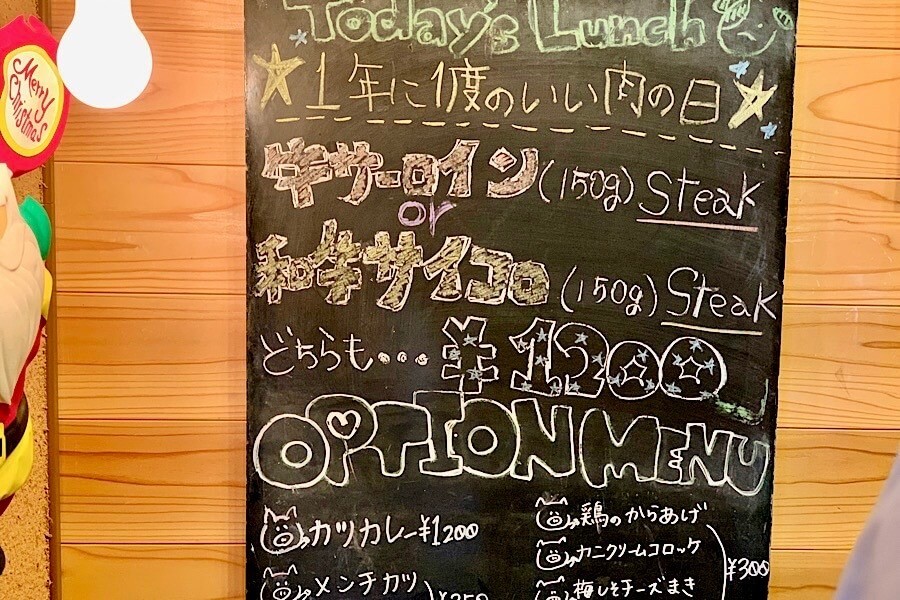 Merry
Christmas
Today's Lunch
1年に1度のいい肉の日
牛サーロイン(150g) Steak
or
和牛サイコロ(150g) Steak
どちらも・・・¥1200
OPTION MENU
カツカレー ¥1200
メンチカツ
¥250
鶏のからあげ
カニクリームコロッケ
梅しそチーズまき
¥300